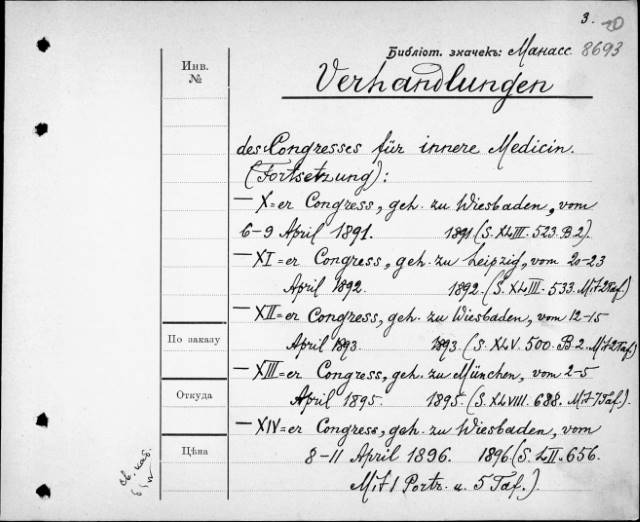 3.
Библіот. значекъ: Манасс. 8693
Инв.
№
Verhandlungen
des Congresses für innere Medicin.
(Fortsetzung):
— X=er Congress, geh. zu Wiesbaden, vom
6-9 April 1891. 1891 (S. XLIII. 523. B2).
— XI=er Congress, geh. zu Leipzig, vom 20-23
April 1892. 1892. (S. XLIII. 533. Mit 2 Taf)
— XII=er Congress, geh. zu Wiesbaden, vom 12-15
По заказу
April 1893. 1893. (S. XLV. 500. B2. Mit 2 Taf)
— XIII=er Congress, geh. zu München, vom 2-5
Откуда
April 1895. 1895. (S. XLVIII. 688. Mit 7 Taf.)
— XIV=er Congress, geh. zu Wiesbaden, vom
Цѣна
8-11 April 1896. 1896. (S. LII. 656.
Mit 1 Portr. u. 5 Taf.)